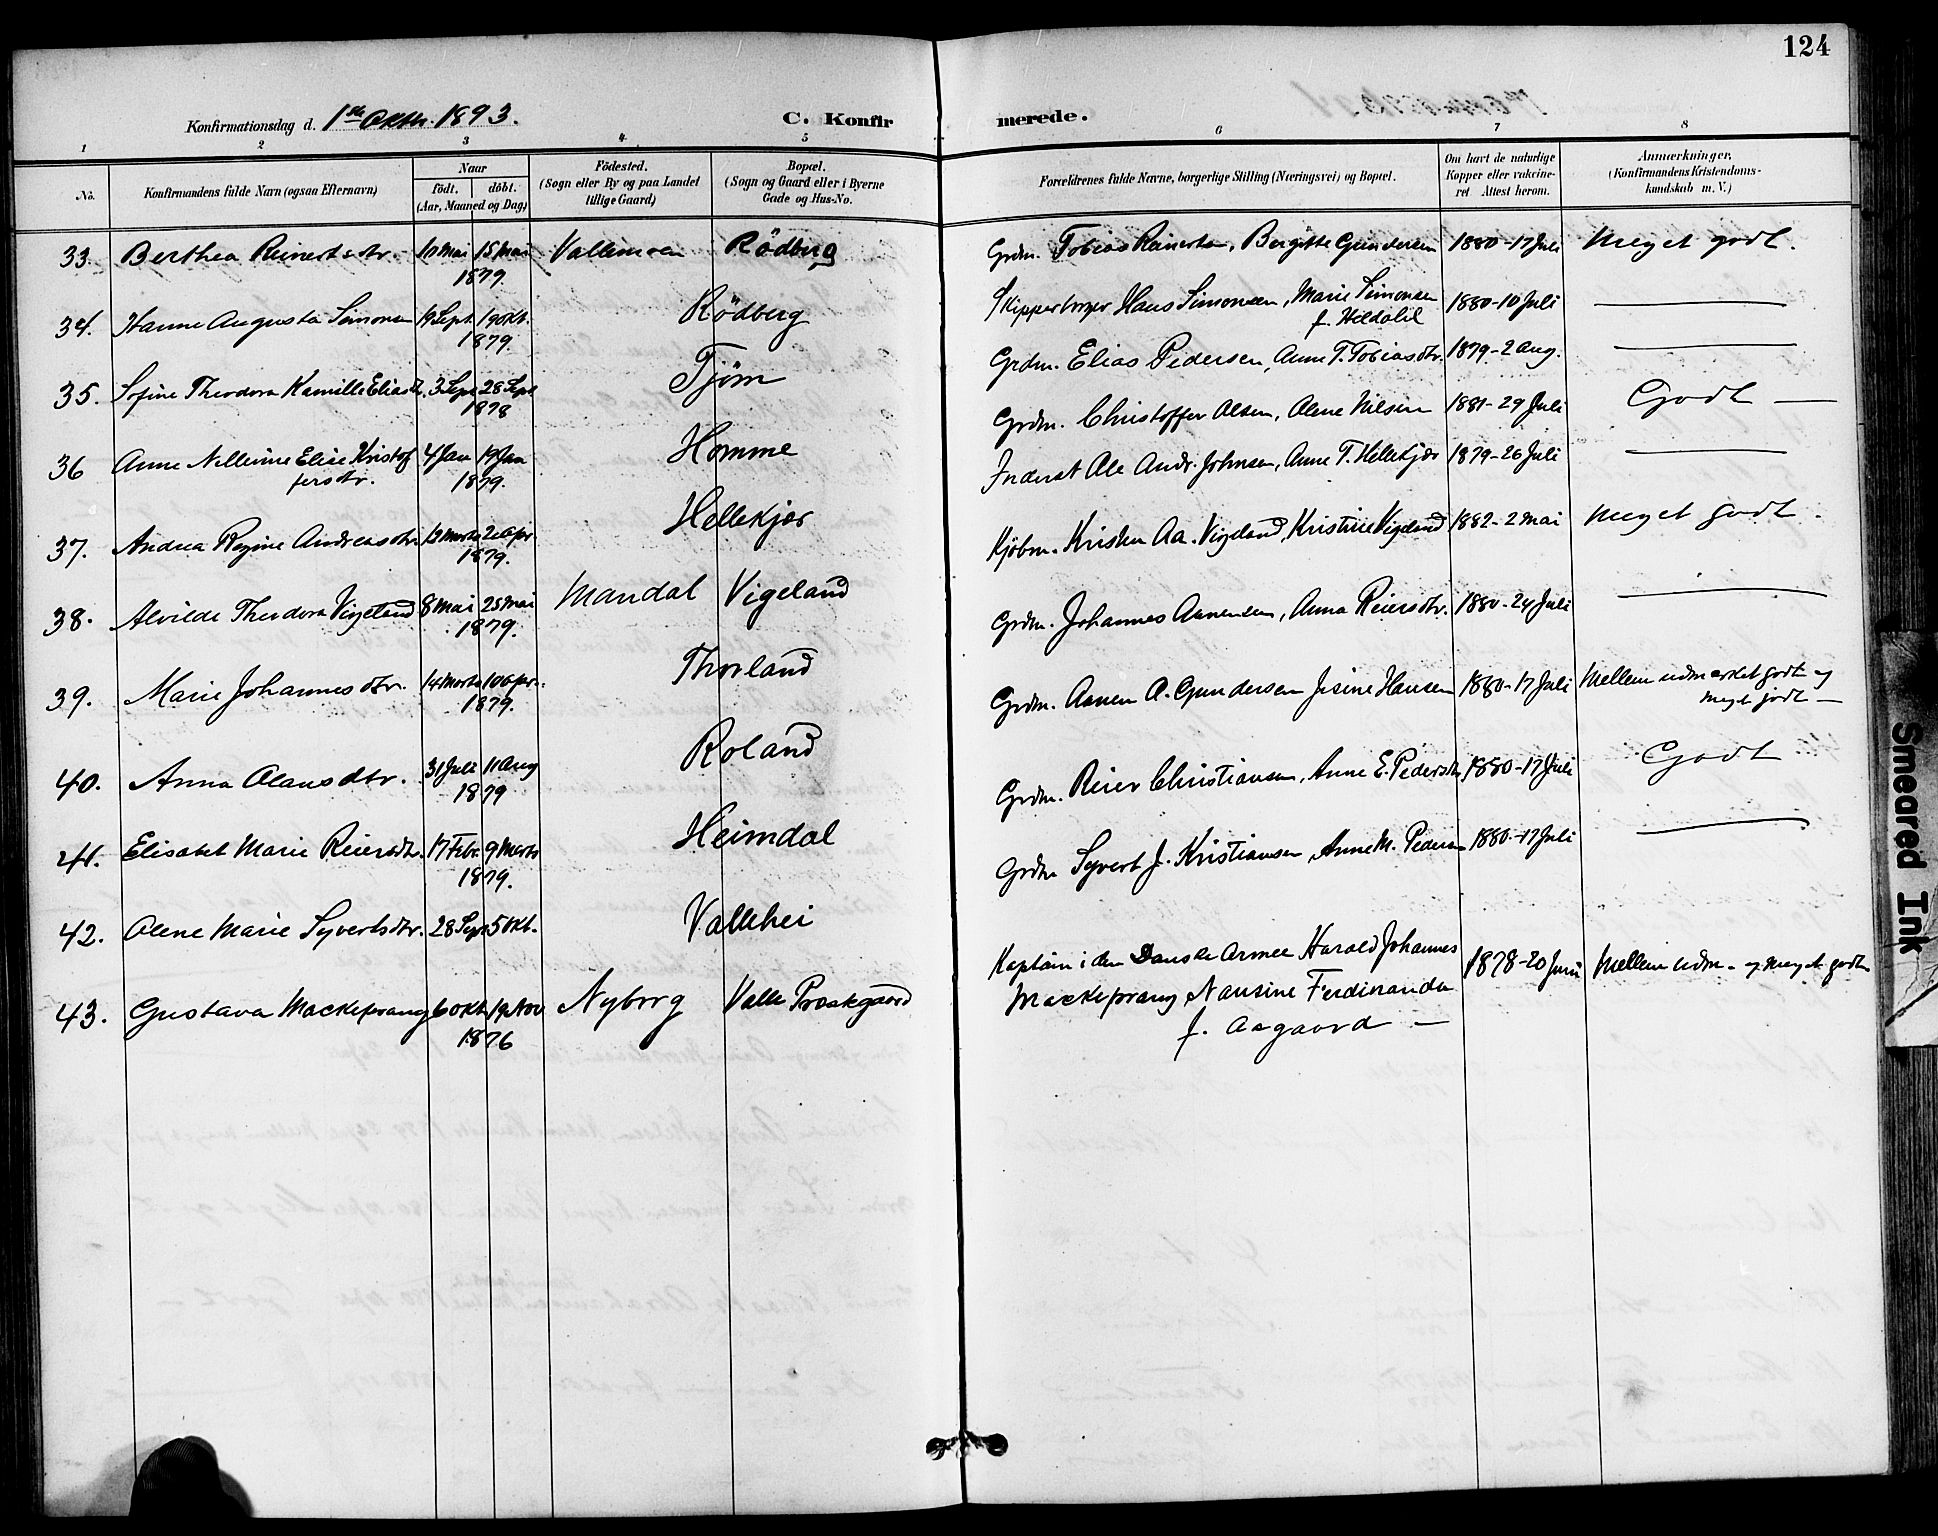 124
Konfirmationsdag d. 1ste Oktbr. 1893.
C. Konfirmerede.
1 2 3 4 5 6 7 8
No.
Konfirmandens fulde Navn (ogsaa Efternavn)
Naar
födt. döbt.
(Aar, Maaned og Dag)
Födested.
(Sogn eller By og paa Landet
tillige Gaard)
Bopæl.
(Sogn og Gaard eller i Byerne
Gade og Hus-No.
Forældrenes fulde Navne, borgerlige Stilling (Næringsvei) og Bopæl.
Om havt de naturlige
Kopper eller vakcine-
ret Attest herom.
Anmærkninger,
(Konfirmandens Kristendoms-
kundskab m. V.)
33. Berthea Reinertsdtr. 10 Mai 15 Mai Vallemoen Rödberg Grdm. Tobias Reinertsen, Bergitte Gundersen 1880-17 Juli Meget godt.
1879.
34. Hanne Augusta Simonsen 9 Sept. 19 Okt. Rödberg Skipperborger Hans Simonsen, Marie Simonsen 1880-10 Juli
1879. f. Heddahl
35. Sofine Theodora Kamille Eliasdtr. 3 Sept 28 Sept Tjöm Grdm. Elias Pedersen, Anne T. Tobiasdtr. 1879-2 Aug.
1878
36 Anne Nellerine Elise Kristof 4 Jan 19 Jan Homme Grdm. Christoffer Olsen, Olene Nilsen 1881-29 Juli Godt
fersdtr. 1879.
37. Andrea Regine Andreasdtr. 13 Marts 20 Apr. Hellekjær Inderst Ole Andr. Johnsen, Anne T. Hellekjær 1879-26 Juli
1879.
38. Alvilde Theodora Vigeland 8 Mai 25 Mai Mandal Vigeland Kjöbm. Kristen Aa. Vigeland, Kristine Vigeland 1882-2 Mai Meget godt.
1879.
39. Marie Johannesdtr. 14 Marts 10 Apr. Thorland Grdm. Johannes Aanensen, Anna Reiersdtr. 1880-24 Juli
1879.
40. Anna Olausdtr. 31 Juli 11 Aug Roland Grdm. Aanen A. Gundersen Jesine Hansen 1880-17 Juli Mellem udmærket godt og
meget godt
1879
41. Elisabet Marie Reiersdtr. 17 Febr 9 Marts Heimdal Grdm. Reier Christiansen, Anne E. Pedersdtr. 1880-17 Juli Godt
1879.
42. Olene Marie Syvertsdtr. 28 Sept 5 Okt. Vallehei Grdm Syvert J. Kristiansen, Anne M. Pedersen 1880-17 Juli
43. Gustava Mackeprang 6 Okt. 19 Nov Nyborg Valle Præstegaard Kaptain i den Danske Armee Harald Johannes 1878-20 Juni Mellem udm. og meget godt
1876 Mackeprang, Nansine Ferdinanda
f. Aagaard
Smeared Ink